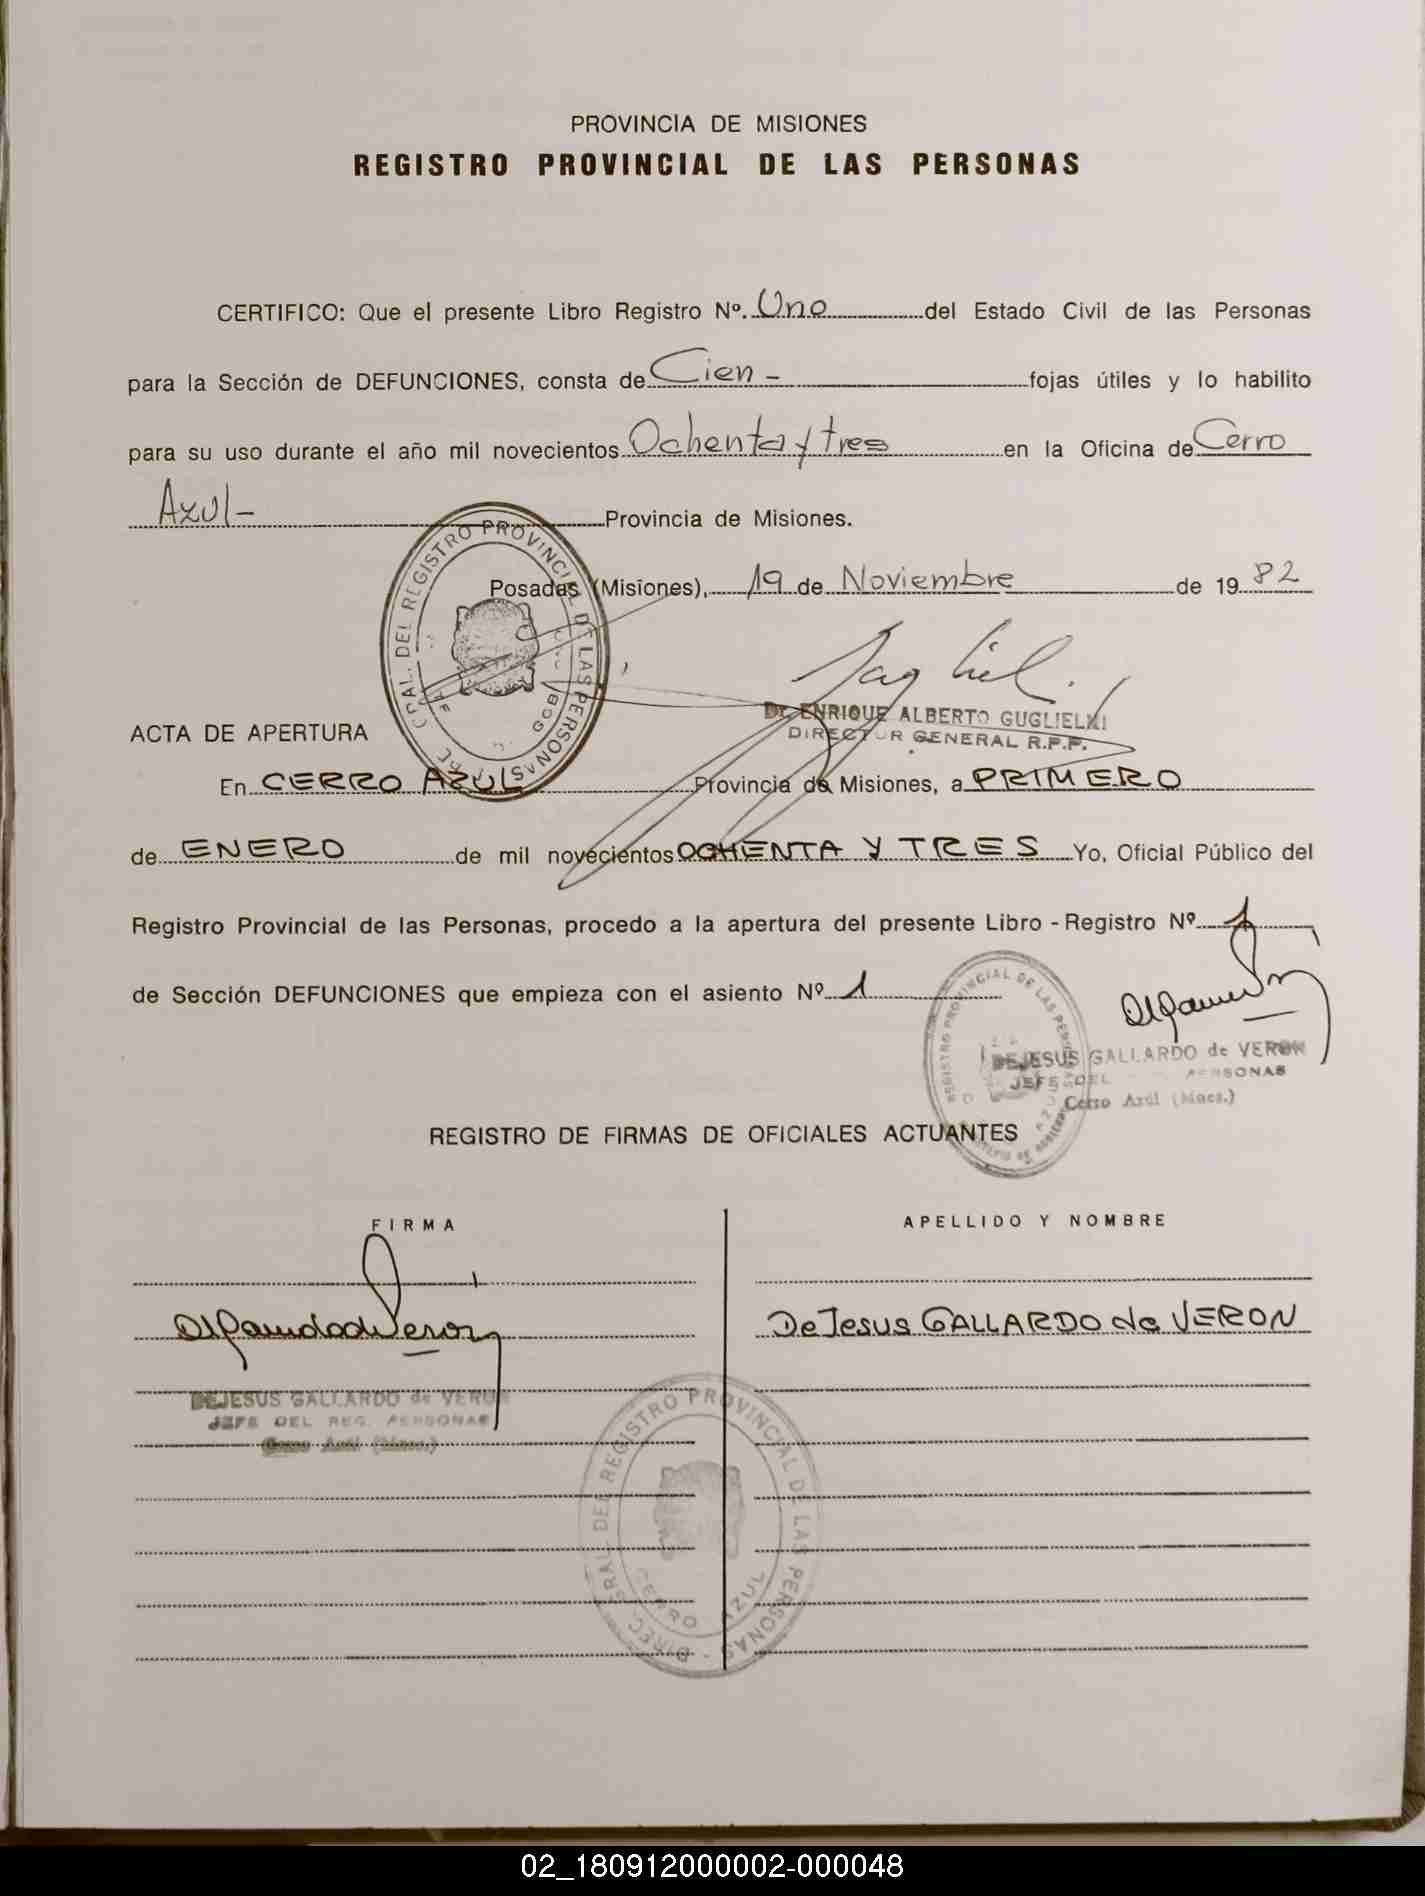 PROVINCIA DE MISIONES
REGISTRO PROVINCIAL DE LAS PERSONAS
CERTIFICO: Que el presente Libro Registro Nº. Uno del Estado Civil de las Personas
para la Sección de DEFUNCIONES, consta de Cien - fojas útiles y lo habilito
para su uso durante el año mil novecientos Ochenta y tres en la Oficina de Cerro
Azul - Provincia de Misiones.
Posadas (Misiones), 19 de Noviembre de 19 82
GRAL. DEL REGISTRO PROVINCIAL DE LAS PERSONAS
Dr. ENRIQUE ALBERTO GUGLIELMI
DIRECTOR GENERAL R.P.P.
ACTA DE APERTURA
En CERRO AZUL Provincia de Misiones, a PRIMERO
de ENERO de mil novecientos OCHENTA Y TRES Yo, Oficial Público del
Registro Provincial de las Personas, procedo a la apertura del presente Libro - Registro Nº 1
de Sección DEFUNCIONES que empieza con el asiento Nº 1
REGISTRO PROVINCIAL DE LAS PERSONAS
DEJESUS GALLARDO de VERON
JEFE DEL PERSONAS
Cerro Azul (Mnes.)
REGISTRO DE FIRMAS DE OFICIALES ACTUANTES
FIRMA APELLIDO Y NOMBRE
DeJesus GALLARDO de VERON
DEJESUS GALLARDO de VERON
JEFE DEL REG. PERSONAS
Cerro Azul (Mnes.)
DIREC. GRAL. DEL REGISTRO PROVINCIAL DE LAS PERSONAS -
CERRO AZUL
02_180912000002-000048